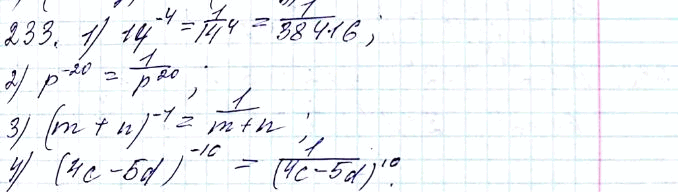 233. 1) 14^{-4} = \frac{1}{14^4} = \frac{1}{38416};
2) p^{-20} = \frac{1}{p^{20}};
3) (m + n)^{-1} = \frac{1}{m+n};
4) (4c - 5d)^{-10} = \frac{1}{(4c-5d)^{10}}.